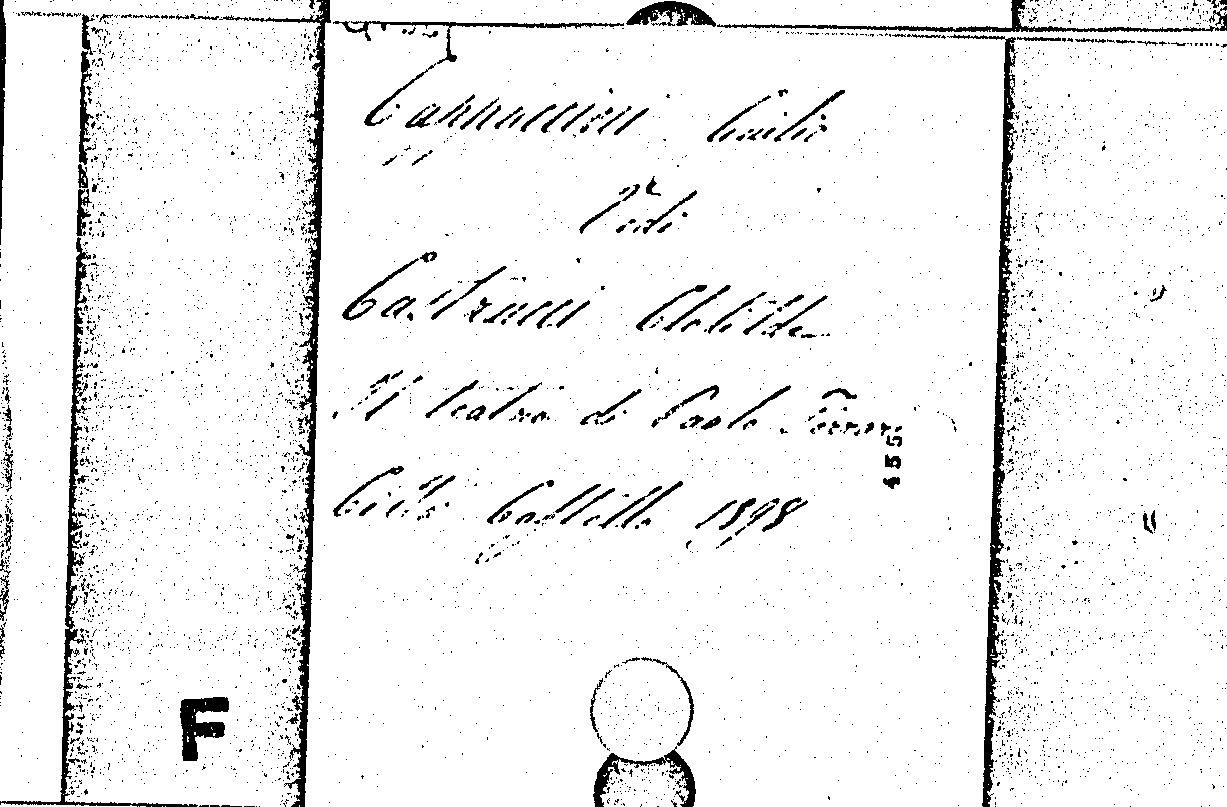 Cappuccini
Vedi
Castrucci Clotilde
Il teatro di Paolo Ferrari
455
Città Castello 1898
F